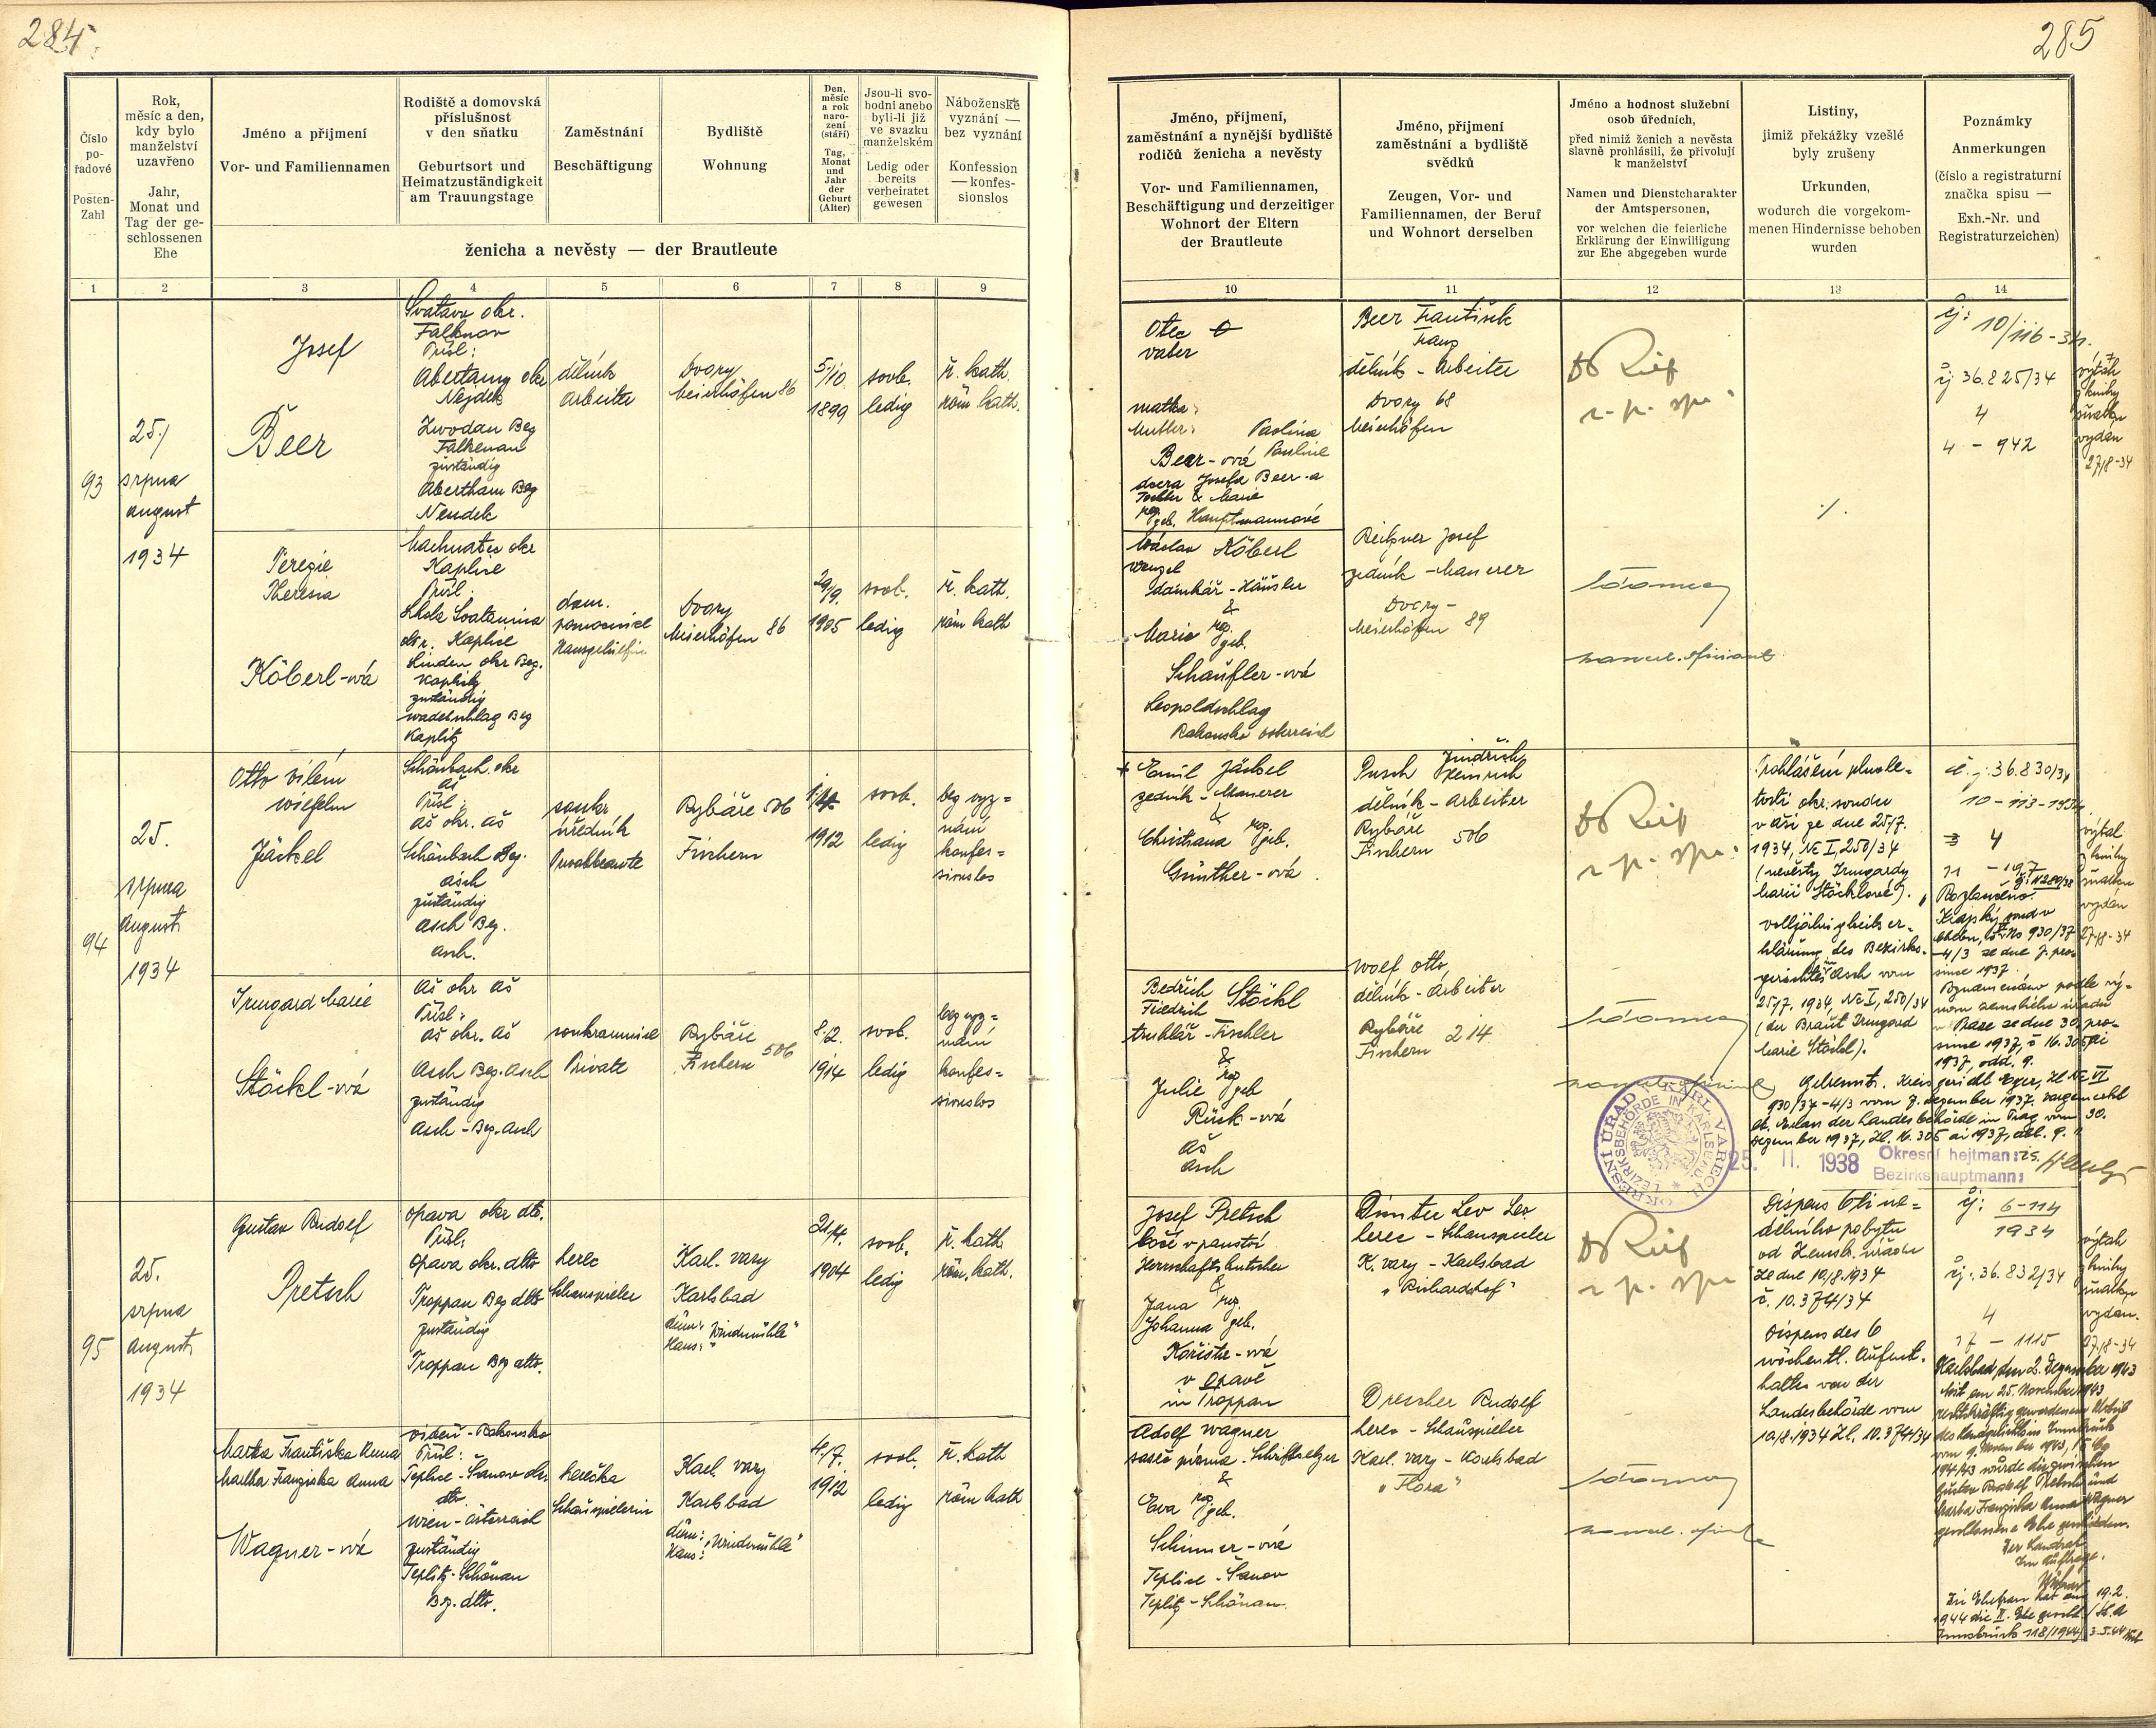 284.
Číslo
po-
řadové
Posten-
Zahl
Rok,
měsíc a den,
kdy bylo
manželství
uzavřeno
Jahr,
Monat und
Tag der ge-
schlossenen
Ehe
Jméno a příjmení
Vor- und Familiennamen
Rodiště a domovská
příslušnost
v den sňatku
Geburtsort und
Heimatzuständigkeit
am Trauungstage
Zaměstnání
Beschäftigung
Bydliště
Wohnung
Den,
měsíc
a rok
naro-
zení
(stáří)
Tag,
Monat
und
Jahr
der
Geburt
(Alter)
Jsou-li svo-
bodni anebo
byli-li již
ve svazku
manželském
Ledig oder
bereits
verheiratet
gewesen
Náboženské
vyznání —
bez vyznání
Konfession
— konfes-
sionslos
ženicha a nevěsty — der Brautleute
1 2 3 4 5 6 7 8 9
93
25./
srpna
august
1934
Josef
Beer
Svatava okr.
Falknov
Přísl:
Abertamy okr
Nejdek
Zwodau Beg
Falkenau
zuständig
Abertham Beg
Neudek
dělník
Arbeiter
Dvory
Meierhöfen 86
5./10.
1899
svob.
ledig
ř. kath.
röm kath.
Terezie
Theresia
Köberl-vá
Kaplice
Přísl.
okr. Kaplice
Linden okr Beg.
Kaplitz
zuständig
Kaplitz
dom.
pomocnice
Hausgehilfin
Dvory
Meierhöfen 86
29/9.
1905
svob.
ledig
ř. kath.
röm kath
94
25.
srpna
August
1934
Otto Vilém
Wilhelm
Jäckel
Schönbach okr
Aš
Přísl:
Aš okr. Aš
Schönbach Beg.
Asch
zuständig
Asch Beg.
Asch.
soukr
úředník
Privatbeamte
Rybáře 506
Fischern
1912
svob.
ledig
beg vyz=
nání
konfes=
sionslos
Irmgard Marie
Stöckl-vá
Aš okr Aš
Přísl:
Aš okr. Aš
Asch Beg. Asch
zuständig
Asch - Beg. Asch
soukromnice
Private
Rybáře
Fischern 506
8./2.
1914
svob.
ledig
beg vyz=
nání
konfes=
sionslos
95
25.
srpna
August
1934
Gustav Rudolf
Pretsch
Opava okr dtto.
Přísl:
Opava okr. dtto
Troppau Beg dtto
zuständig
Troppau Beg dtto.
herec
Schauspieler
Karl. Vary
Karlsbad
dům: "Windmühle"
Haus:
21/4.
1904
svob.
ledig
ř. kath.
röm. kath.
Marta Františka Anna
Martha Franziska Anna
Wagner-vá
Vídeň - Rakousko
Přísl:
Teplice - Šanov okr.
dtto
Wien - Österreich
zuständig
Teplitz-Schönau
Beg. dtto.
herečka
Schauspielerin
Karl. Vary
Karlsbad
dům: "Windmühle"
Haus:
4./7.
1912
svob.
ledig
ř. kath
röm kath
285
Jméno, příjmení,
zaměstnání a nynější bydliště
rodičů ženicha a nevěsty
Vor- und Familiennamen,
Beschäftigung und derzeitiger
Wohnort der Eltern
der Brautleute
Jméno, příjmení
zaměstnání a bydliště
svědků
Zeugen, Vor- und
Familiennamen, der Beruf
und Wohnort derselben
Jméno a hodnost služební
osob úředních,
před nimiž ženich a nevěsta
slavně prohlásili, že přivolují
k manželství
Namen und Dienstcharakter
der Amtspersonen,
vor welchen die feierliche
Erklärung der Einwilligung
zur Ehe abgegeben wurde
Listiny,
jimiž překážky vzešlé
byly zrušeny
Urkunden,
wodurch die vorgekom-
menen Hindernisse behoben
wurden
Poznámky
Anmerkungen
(číslo a registraturní
značka spisu —
Exh.-Nr. und
Registraturzeichen)
10 11 12 13 14
Otec
Vater
matka:
Mutter: Paulina
Beer-ová Pauline
dcera Josefa Beer-a
Tochter & Marie
geb. Hauptmannové
Beer František
Franz
dělník - Arbeiter
Dvory 68
Meierhöfen
čj: 10/116-34.
čj 36.825/34
4
4 - 942
výtah
z knihy
sňatku
vydán
27/8-34
Václav Köberl
Wenzel
domkář - Häusler
&
Marie roz. geb.
Schaufler-vá
Leopoldschlag
Rakousko Österreich
Josef
zedník - Maurer
Dvory -
Meierhöfen 89
kancel. oficiant
Emil Jäckel
zedník - Maurer
&
Christiana roz. geb.
Günther-vá
Pusch Jindřich
Heinrich
dělník - Arbeiter
Rybáře
Fischern 506
Prohlášení plnole=
tosti okr. soudu
v Aši ze dne 25/7.
1934, Nc I, 250/34
(nevěsty Irmgardy
Marie Stöcklové).
Volljährigkeits er-
klärung des Bezirks-
gerichtes Asch vom
25/7. 1934, Nc I, 250/34
(der Braut Irmgard
Marie Stöckl).
č. j. 36.830/34
10-113-1934
4
výtah
z knihy
sňatku
vydán
27/8-34
Rozloučeno:
Krajský soud v
Chebu, 930/37
-4/3 ze dne 7. pro-
since 1937.
Poznamenáno podle vý-
nosu zemského úřadu
v Praze ze dne 30. pro-
since 1937, č 16.305 ai
1937, odd. 9.
Bedřich Stöckl
Friedrich
truhlář - Tischler
&
Julie roz geb
Rück-vá
Aš
Asch
Wolf Otto
dělník - Arbeiter
Rybáře 214
Fischern
Getrennt. Kreisgericht Eger, Zl Nc VI
930/37-4/3 vom 7. Dezember 1937. Vorgemerkt
lt. Erlass der Landesbehörde in Prag vom 30.
Dezember 1937, Zl. 16.305 ai 1937, abt. 9.
OKRESNÍ ÚŘAD V KARL. VARECH
BEZIRKSBEHÖRDE IN KARLSBAD
25. II. 1938 Okresní hejtman:
Bezirkshauptmann:
Josef Pretsch
kočí v panství
Herrschaftskutscher
&
Jana roz.
Johanna geb.
Kořistke-vá
v Opavě
in Troppau
Dimter Lev Leo
herec - Schauspieler
K. Vary - Karlsbad
"Richardshof"
Dispens 6ti ne=
dělního pobytu
od Zemsk. úřadu
ze dne 10/8.1934
č. 10.374/34
Dispens des 6
wöchentl. Aufent-
haltes von der
Landesbehörde vom
10/8.1934 Zl. 10.374/34
čj: 6-114
1934
čj: 36.832/34
4
- 1115
výtah
z knihy
sňatku
vydán.
27/8-34
Karlsbad, den 2. Dezember 1943
Mit am 25. November 1943
rechtskräftig gewordenem Urteil
des Landgerichts in Innsbruck
vom 9. November 1943,
194/43 wurde die zwischen
Gustav Rudolf Pretsch und
Martha Franziska Anna Wagner
geschlossene Ehe geschieden.
Der Landrat
Im Auftrage.
Die Ehefrau hat am 19.2.
1944 die II. Ehe geschl. / St.A
Innsbruck 118/1944/ 3.5.44
Adolf Wagner
sazeč písma - Schriftsetzer
&
Eva roz. geb.
Schimmer-vá
Teplice - Šanov
Teplitz - Schönau.
Drescher Rudolf
herec - Schauspieler
Karl. Vary - Karlsbad
"Flora"